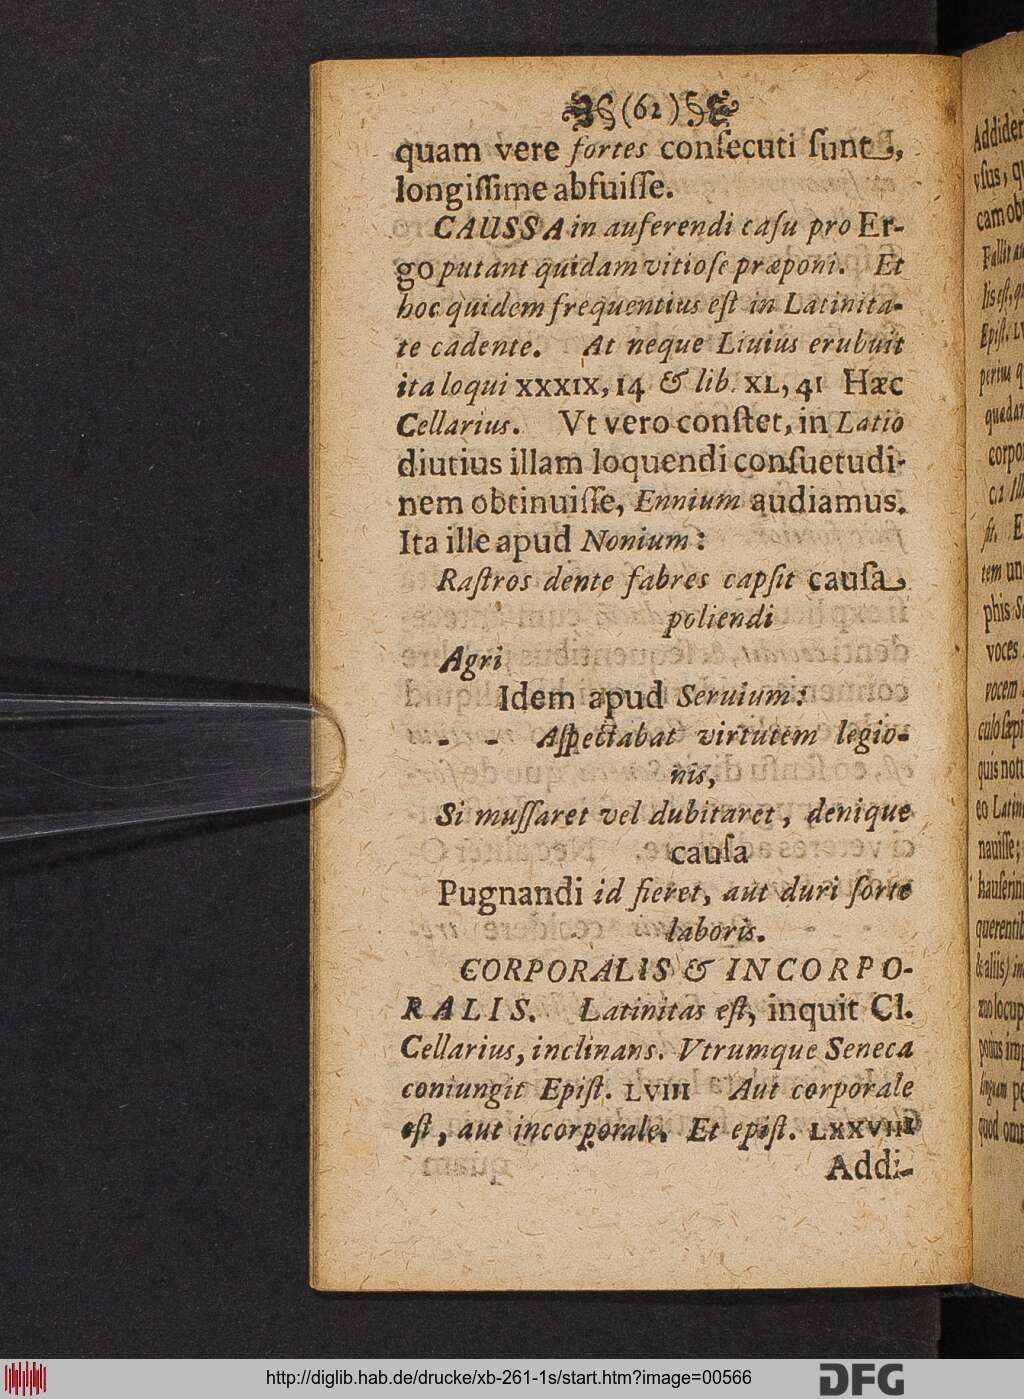 (62)
quam vere fortes conſecuti ſunt,
longiſſime abfuiſſe.
CAUSSA in auferendi caſu pro Er-
go putant quidam vitioſe præponi. Et
hoc quidem frequentius eſt in Latinita-
te cadente. At neque Liuius erubuit
ita loqui XXXIX, 14 & lib. XL, 41 Hæc
Cellarius. Vt vero conſtet, in Latio
diutius illam loquendi conſuetudi-
nem obtinuiſſe, Ennium audiamus.
Ita ille apud Nonium:
Raſtros dente fabres capſit cauſa
poliendi
Agri
Idem apud Seruium:
- - Aſpectabat virtutem legio-
nis,
Si muſſaret vel dubitaret, denique
cauſa
Pugnandi id fieret, aut duri ſorte
laboris.
CORPORALIS & INCORPO-
RALIS. Latinitas eſt, inquit Cl.
Cellarius, inclinans. Vtrumque Seneca
coniungit Epiſt. LVIII Aut corporale
eſt, aut incorporale. Et epiſt. LXXVIII
Addi-
Addider
vſus, q
cam ob
Epiſt. L
corpo
phis S
voces
vocem
quis not
eo Latin
nauiſſe;
hauſerin
querenti
quod om
http://diglib.hab.de/drucke/xb-261-1s/start.htm?image=00566
DFG